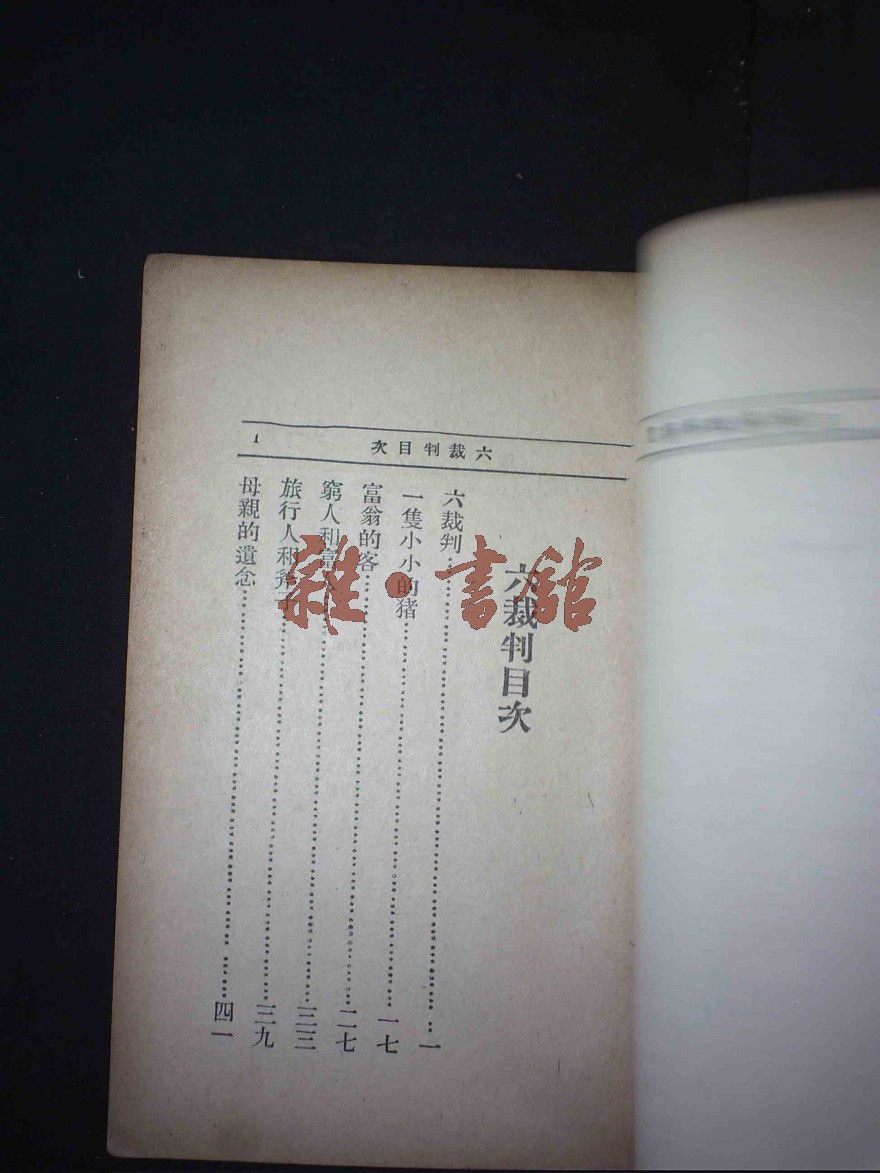 六裁判目次
1
六裁判目次
六裁判……一
一隻小小的猪……一七
富翁的客……二七
窮人和富……三三
旅行人和斧子……三九
母親的遺念……四一
雜·書館